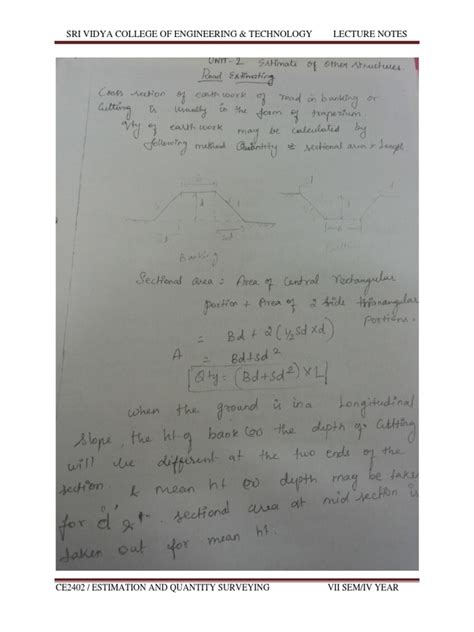 SRI VIDYA COLLEGE OF ENGINEERING & TECHNOLOGY LECTURE NOTES
UNIT-2 Estimate of other structures
Road Estimating
Cross section of earthwork of road in banking or
Cutting is usually in the form of trapezium
Qty of earthwork may be calculated by
following method Quantity = sectional area × Length
Banking
Sectional area = Area of Central rectangular
portion + Area of 2 side triangular
portions.
= Bd + 2(1/2 Sd × d)
A = Bd+Sd²
Qty = (Bd+Sd²) × L
When the ground is in a Longitudinal
Slope, the ht of bank (or) the depth of Cutting
will be different at the two ends of the
section. & mean ht (or) depth may be taken
for 'd' sectional area at mid section is
taken out for mean ht.
CE2402 / ESTIMATION AND QUANTITY SURVEYING VII SEM/IV YEAR